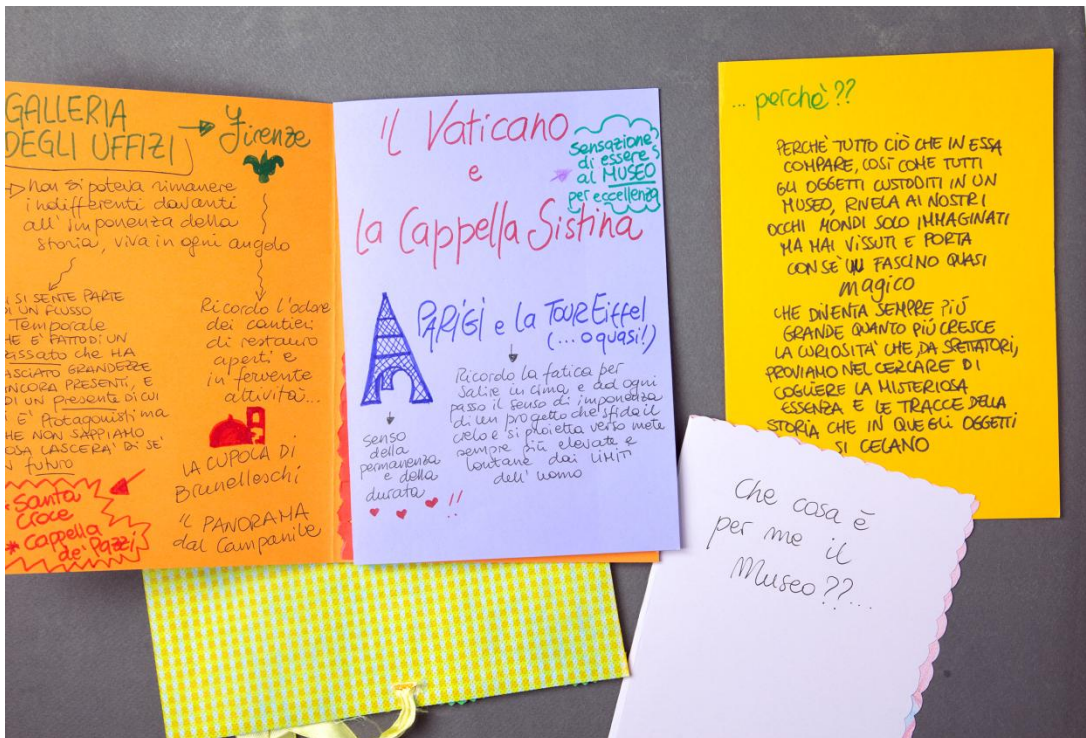 GALLERIA
DEGLI UFFIZI
Firenze
non si poteva rimanere
indifferenti davanti
all' imponenza della
storia, viva in ogni angolo
SI SENTE PARTE
DI UN FLUSSO
Temporale
HE E' FATTO DI UN
passato che HA
LASCIATO GRANDEZZE
ANCORA PRESENTI, E
DI UN presente di cui
E' Protagonisti ma
HE NON SAPPIAMO
COSA LASCERA' DI SE'
futuro
* Santa
Croce
* Cappella
de' Pazzi
Ricordo l'odore
dei cantieri
di restauro
aperti e
in fervente
attività...
LA CUPOLA DI
Brunelleschi
IL PANORAMA
dal Campanile
Il Vaticano
e
la Cappella Sistina
Sensazione
di essere
al MUSEO
per eccellenza
PARIGI e la TOUR Eiffel
(... o quasi!)
Ricordo la fatica per
salire in cima e ad ogni
passo il senso di imponenza
di un progetto che sfida il
cielo e si proietta verso mete
sempre più elevate e
lontane dai LIMITI
dell' uomo
senso
della
permanenza
e della
durata
!!
... perchè??
PERCHÈ TUTTO CIÒ CHE IN ESSA
COMPARE, COSÌ COME TUTTI
GLI OGGETTI CUSTODITI IN UN
MUSEO, RIVELA AI NOSTRI
OCCHI MONDI SOLO IMMAGINATI
MA MAI VISSUTI E PORTA
CON SÈ UN FASCINO QUASI
magico
CHE DIVENTA SEMPRE PIÙ
GRANDE QUANTO PIÙ CRESCE
LA CURIOSITÀ CHE, DA SPETTATORI,
PROVIAMO NEL CERCARE DI
COGLIERE LA MISTERIOSA
ESSENZA E LE TRACCE DELLA
STORIA CHE IN QUEGLI OGGETTI
SI CELANO
Che cosa è
per me il
Museo??...